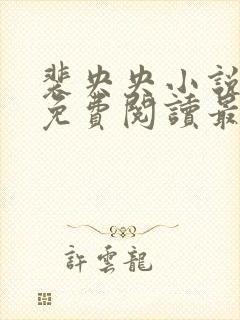 裴央央小說
免費閱讀最
許雲龍